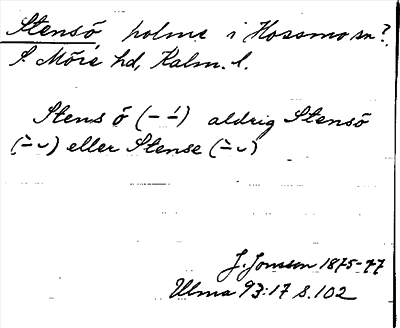 Stensö holme i Hossmo sn?
S. Möre hd, Kalm. l.
Stens ö (– –́) aldrig Stensö
(–̀ ᴗ) eller Stense (–̀ ᴗ)
J. Jonsson 1875-77
Ulma 93:17 s. 102